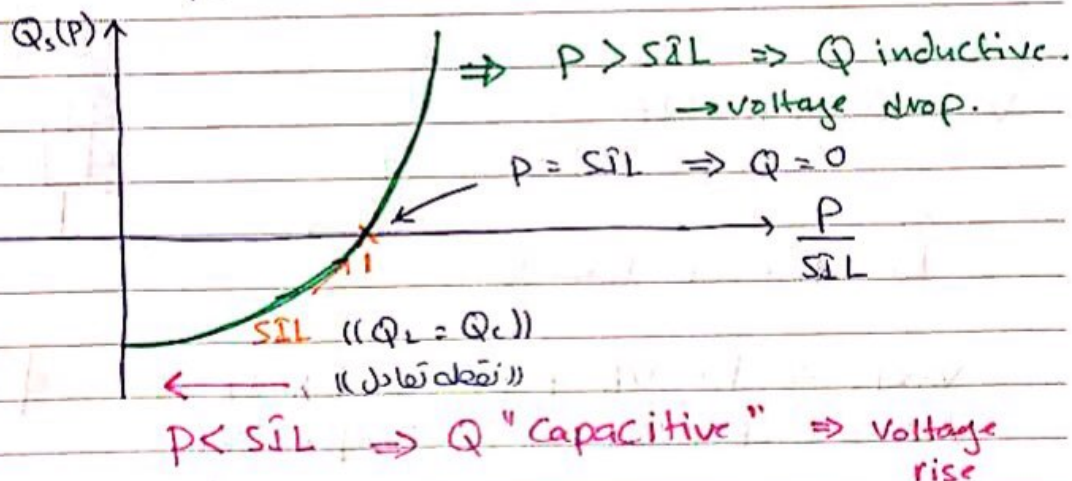 Qs(P)
⇒ P > SIL ⇒ Q inductive.
→ voltage drop.
P = SIL ⇒ Q = 0
P
SIL
1
SIL ((QL = QC))
((نقطة تعادل))
P < SIL ⇒ Q "Capacitive" ⇒ Voltage
rise